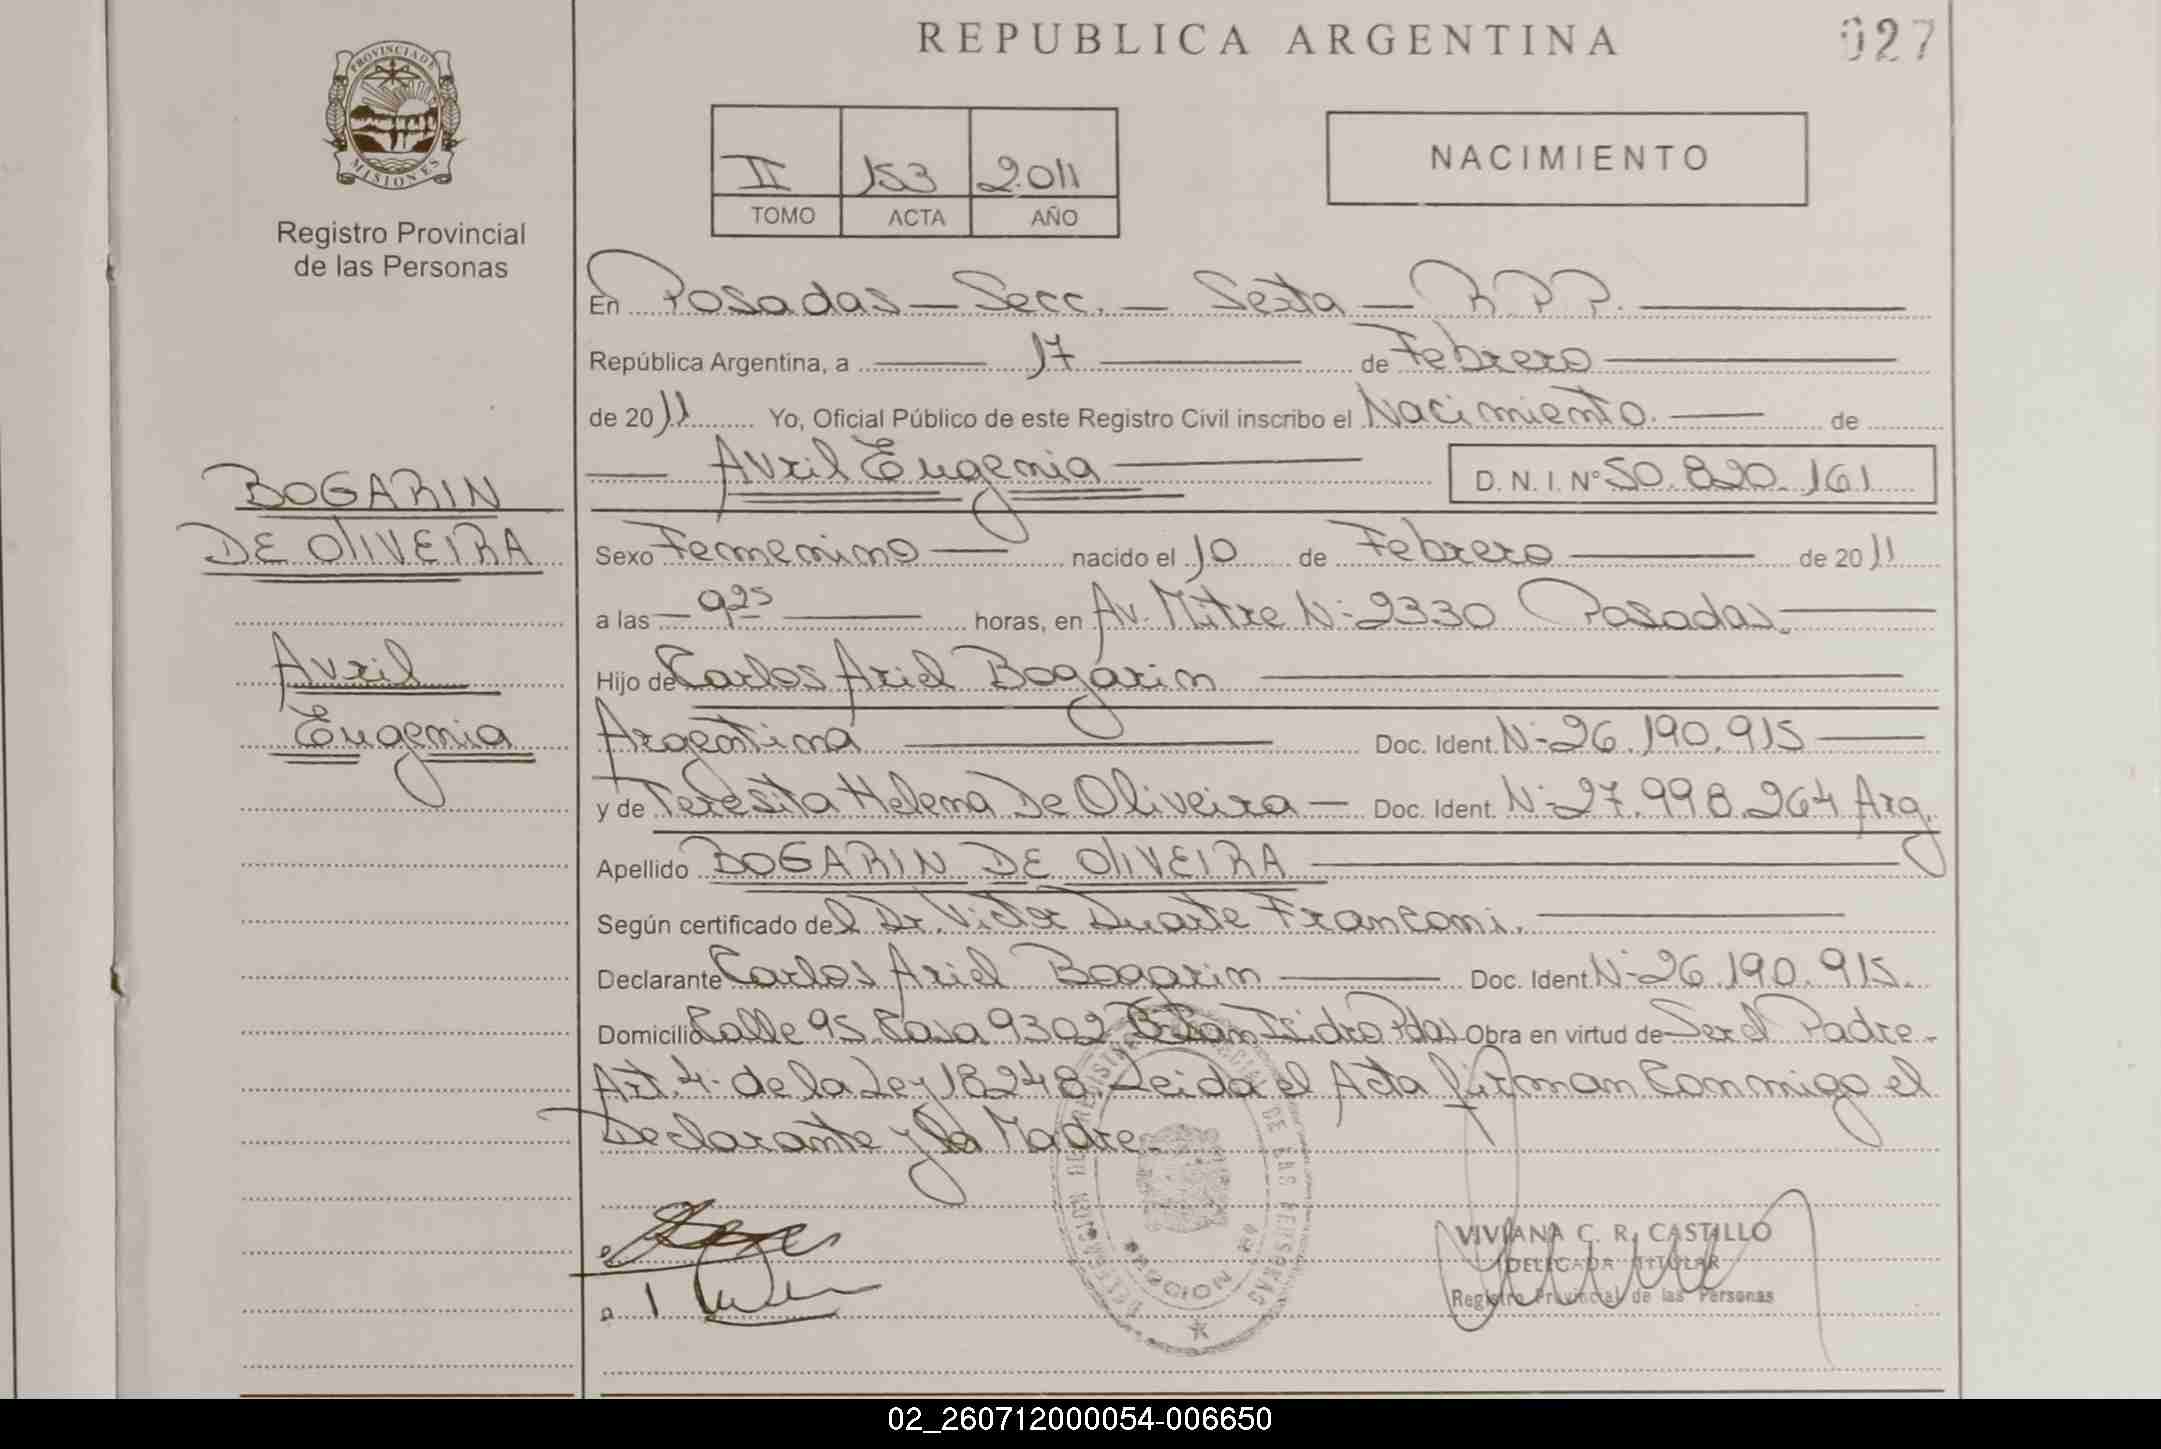 REPUBLICA ARGENTINA
027
PROVINCIA DE
MISIONES
Registro Provincial
de las Personas
II 153 2.011
TOMO ACTA AÑO
NACIMIENTO
En Posadas - Secc. - Sexta - R.P.P.
República Argentina, a 17 de Febrero
de 2011 Yo, Oficial Público de este Registro Civil inscribo el Nacimiento. de
Avril Eugenia D.N.I. Nº 50.820.161
BOGARIN
DE OlIVEIRA
Avril
Eugenia
Sexo Femenino nacido el 10 de Febrero de 2011
a las 9 25 horas, en Av. Mitre N:2330 Posadas.
Hijo de Carlos Ariel Bogarin
Argentina Doc. Ident. N:26.190.915
y de Teresita Helena De Oliveira - Doc. Ident. N:27.998.264 Arg.
Apellido BOGARIN DE OlIVEIRA
Según certificado del Dr. Victor Duarte Franconi.
Declarante Carlos Ariel Bogarin Doc. Ident. N:26.190.915.
Domicilio Calle 95 Casa 9302 San Isidro Pdas Obra en virtud de Ser el Padre.
Art. 4: de la Ley 18248. Leida el Acta firman Conmigo el
Declarante y la Madre.
VIVIANA C. R. CASTILLO
DELEGADA TITULAR
Registro Provincial de las Personas
02_260712000054-006650